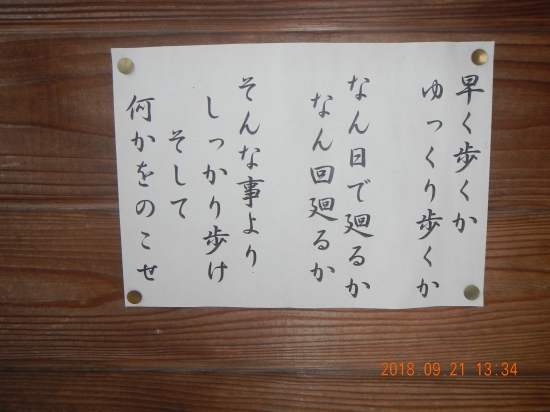 早く歩くか
ゆっくり歩くか
なん日で廻るか
なん回廻るか
そんな事より
しっかり歩け
そして
何かをのこせ
2018.09.21 13:34